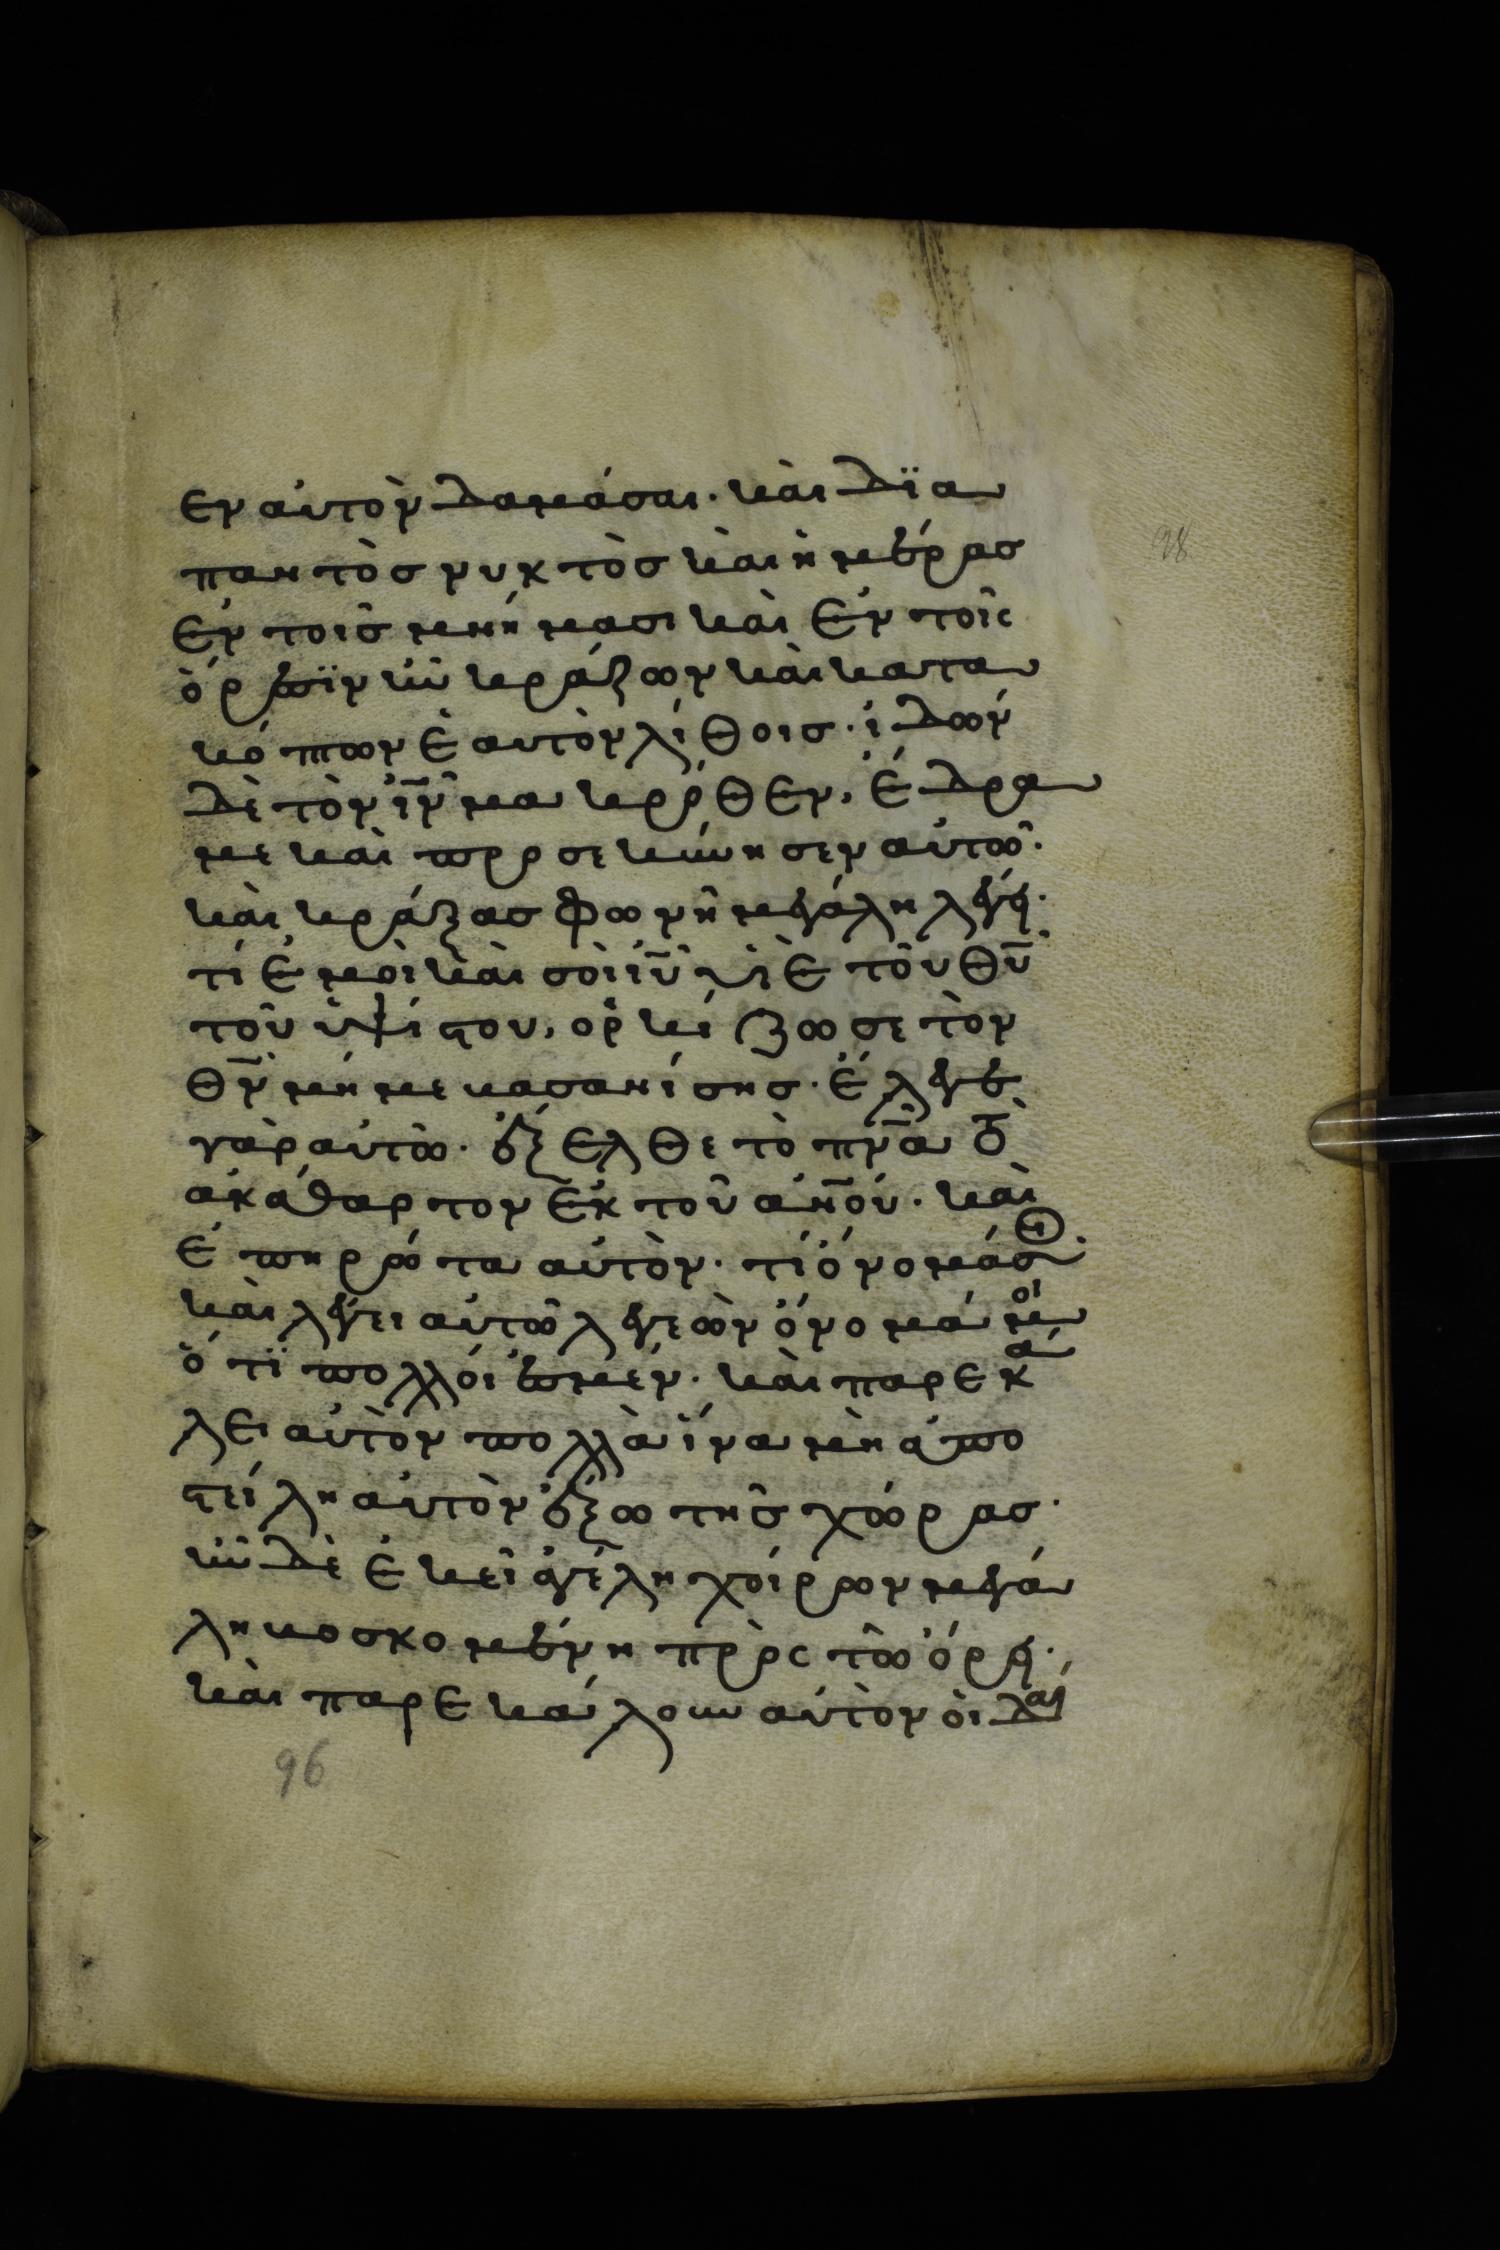 εν αὐτὸν δαμάσαι· καὶ δϊα
παντὸς νυκτὸς καὶ ἡμέρας
ἐν τοῖς μνήμασι καὶ ἐν τοῖς
ὄρεσϊν ἦν κράζων καὶ κατα
κόπτων ἑαυτὸν λίθοις· ἰδὼν
δὲ τὸν ι̅ν̅ μακρόθεν, ἔδρα
με καὶ προσεκύνησεν αὐτῶ·
καὶ κράξας φωνῆ μεγάλη λέγει·
τί ἐμοὶ καὶ σοὶ ι̅υ̅ υἱὲ τοῦ θ̅υ̅
τοῦ ὑψίστου, ὁρκίζω σε τὸν
θ̅ν̅ μή με βασανίσης· ἔλεγε
γὰρ αὐτῶ· ἔξελθε τὸ π̅ν̅α̅ τὸ
ἀκάθαρτον ἐκ τοῦ α̅ν̅ο̅υ̅· καὶ
ἐπηρώτα αὐτὸν· τί ὄνομά σοι·
καὶ λέγει αὐτῶ λεγεὼν ὄνομά μοι
ὅτϊ πολλοί ἐσμεν· καὶ παρεκά
λει αὐτὸν πολλὰ ἵνα μὴ ἀπο
στείλη αὐτὸν ἔξω τῆς χώρας·
ἦν δὲ ἐκεῖ ἀγέλη χοίρων μεγά
λη βοσκομένη πρὸς τῶ ὄρει·
καὶ παρεκάλουν αὐτὸν οἱ δαί
96